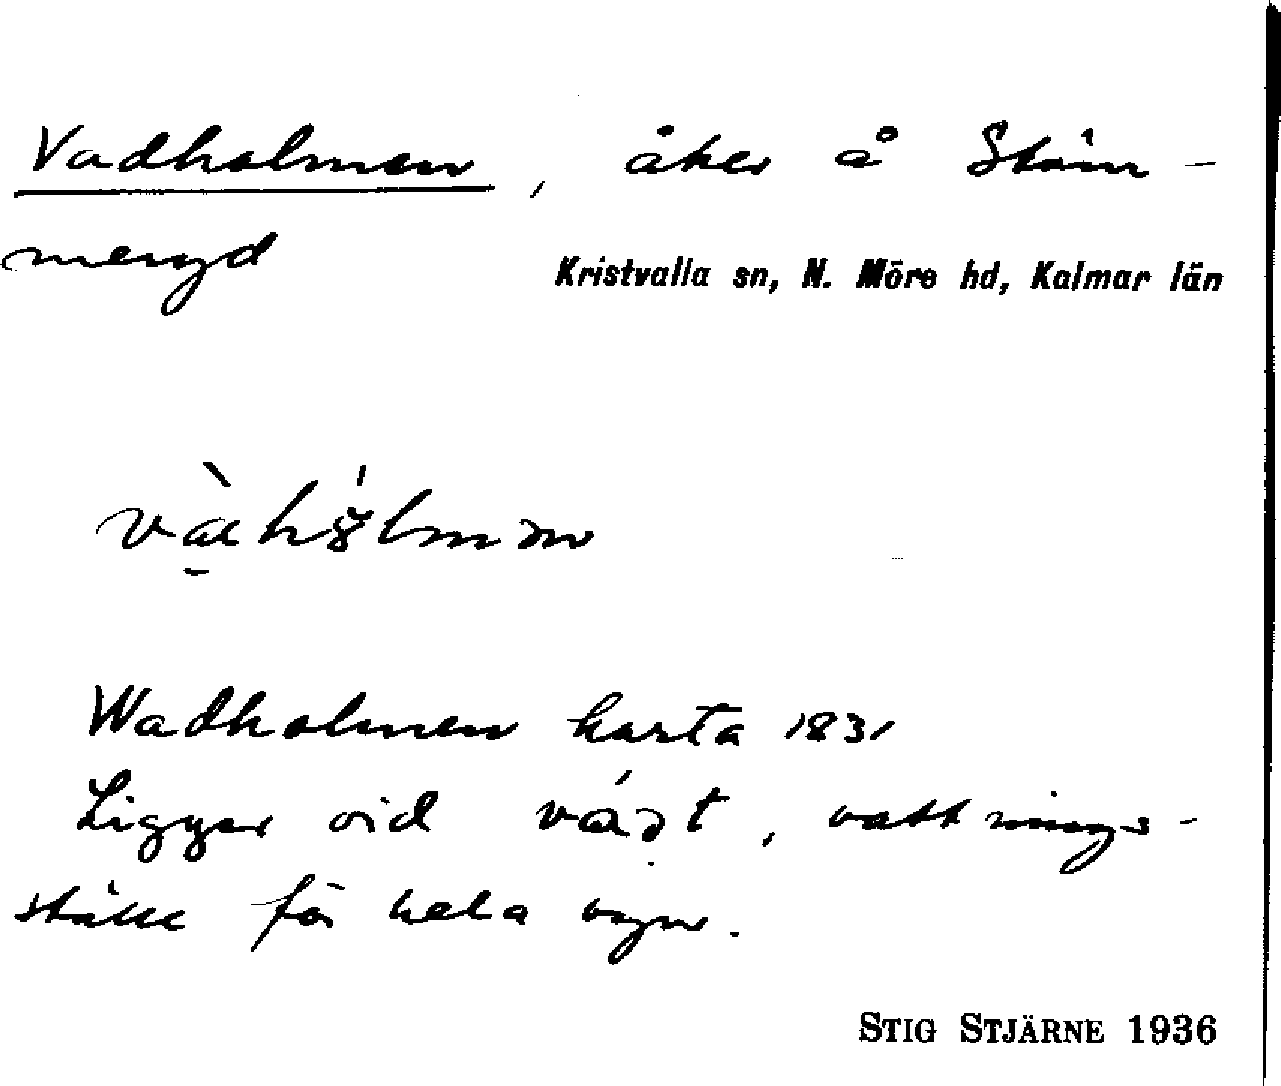 Vadholmen, åker å Stäm-
meryd
Kristvalla sn, N. Möre hd, Kalmar län
Wadholmen karta 1831
Ligger vid vaət, vattnings-
ställe för hela byn.
STIG STJÄRNE 1936